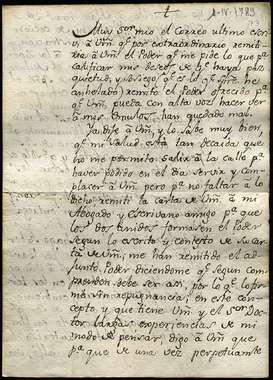 1-IV-1789
Muy Sor mio el Correo ultimo escri-
vi, à Vm̃ qe por extraordinario remiti-
ria à Vm̃ el Poder qe me pide lo que pa
calificar mis deseos de qe haya paz
quietud, y sosiego (qe es lo qe siempre he
anhelado) remito el Poder ofrecido pa
qe Vm̃ pueda con alta voz hacer ver
à mis Emulos, han quedado mal.
Ya dije à Vm̃, y lo sabe muy bien,
qe mi salud està tan decaida que
no me permite salir à la calle pa
haver podido en el dia servir y com-
placer à Vm̃ pero pa no faltar à lo
dicho, remiti la carta de Vm̃ à mi
Abogado y escrivano amigo pa que
los dos unidos formasen el Poder
segun lo escrito y contexto de su Car-
ta de Vm̃, me han remitido el ad-
junto Poder diciendome qe segun com-
prenden debe ser asi, por lo qe lo fir-
mè sin repugnancia; en este con-
cepto y que tiene Vm̃ y el Sor Doc-
tor largas experiencias de mi
modo de pensar, digo à Vm̃ que
pa que de una vez perpetuamte